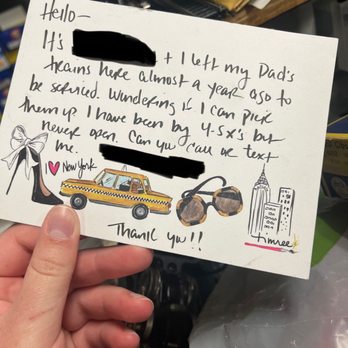 Hello-
It's + I left my Dad's
trains here almost a year ago to
be serviced. Wondering if I can pick
them up I have been by 4-5x's but
never open. Can you call or text
me.
I ♥ New York
Thank you!!
timree